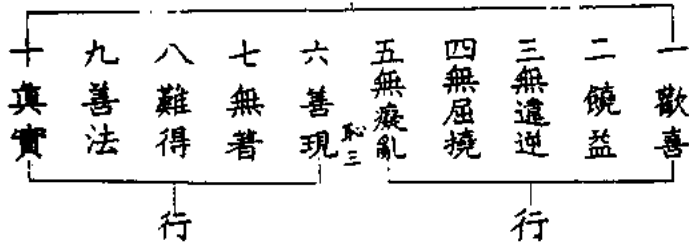 一歡喜
二饒益
三無違逆
四無屈撓
五無癡亂
恥三
六善現
七無著
八難得
九善法
十真實
行
行